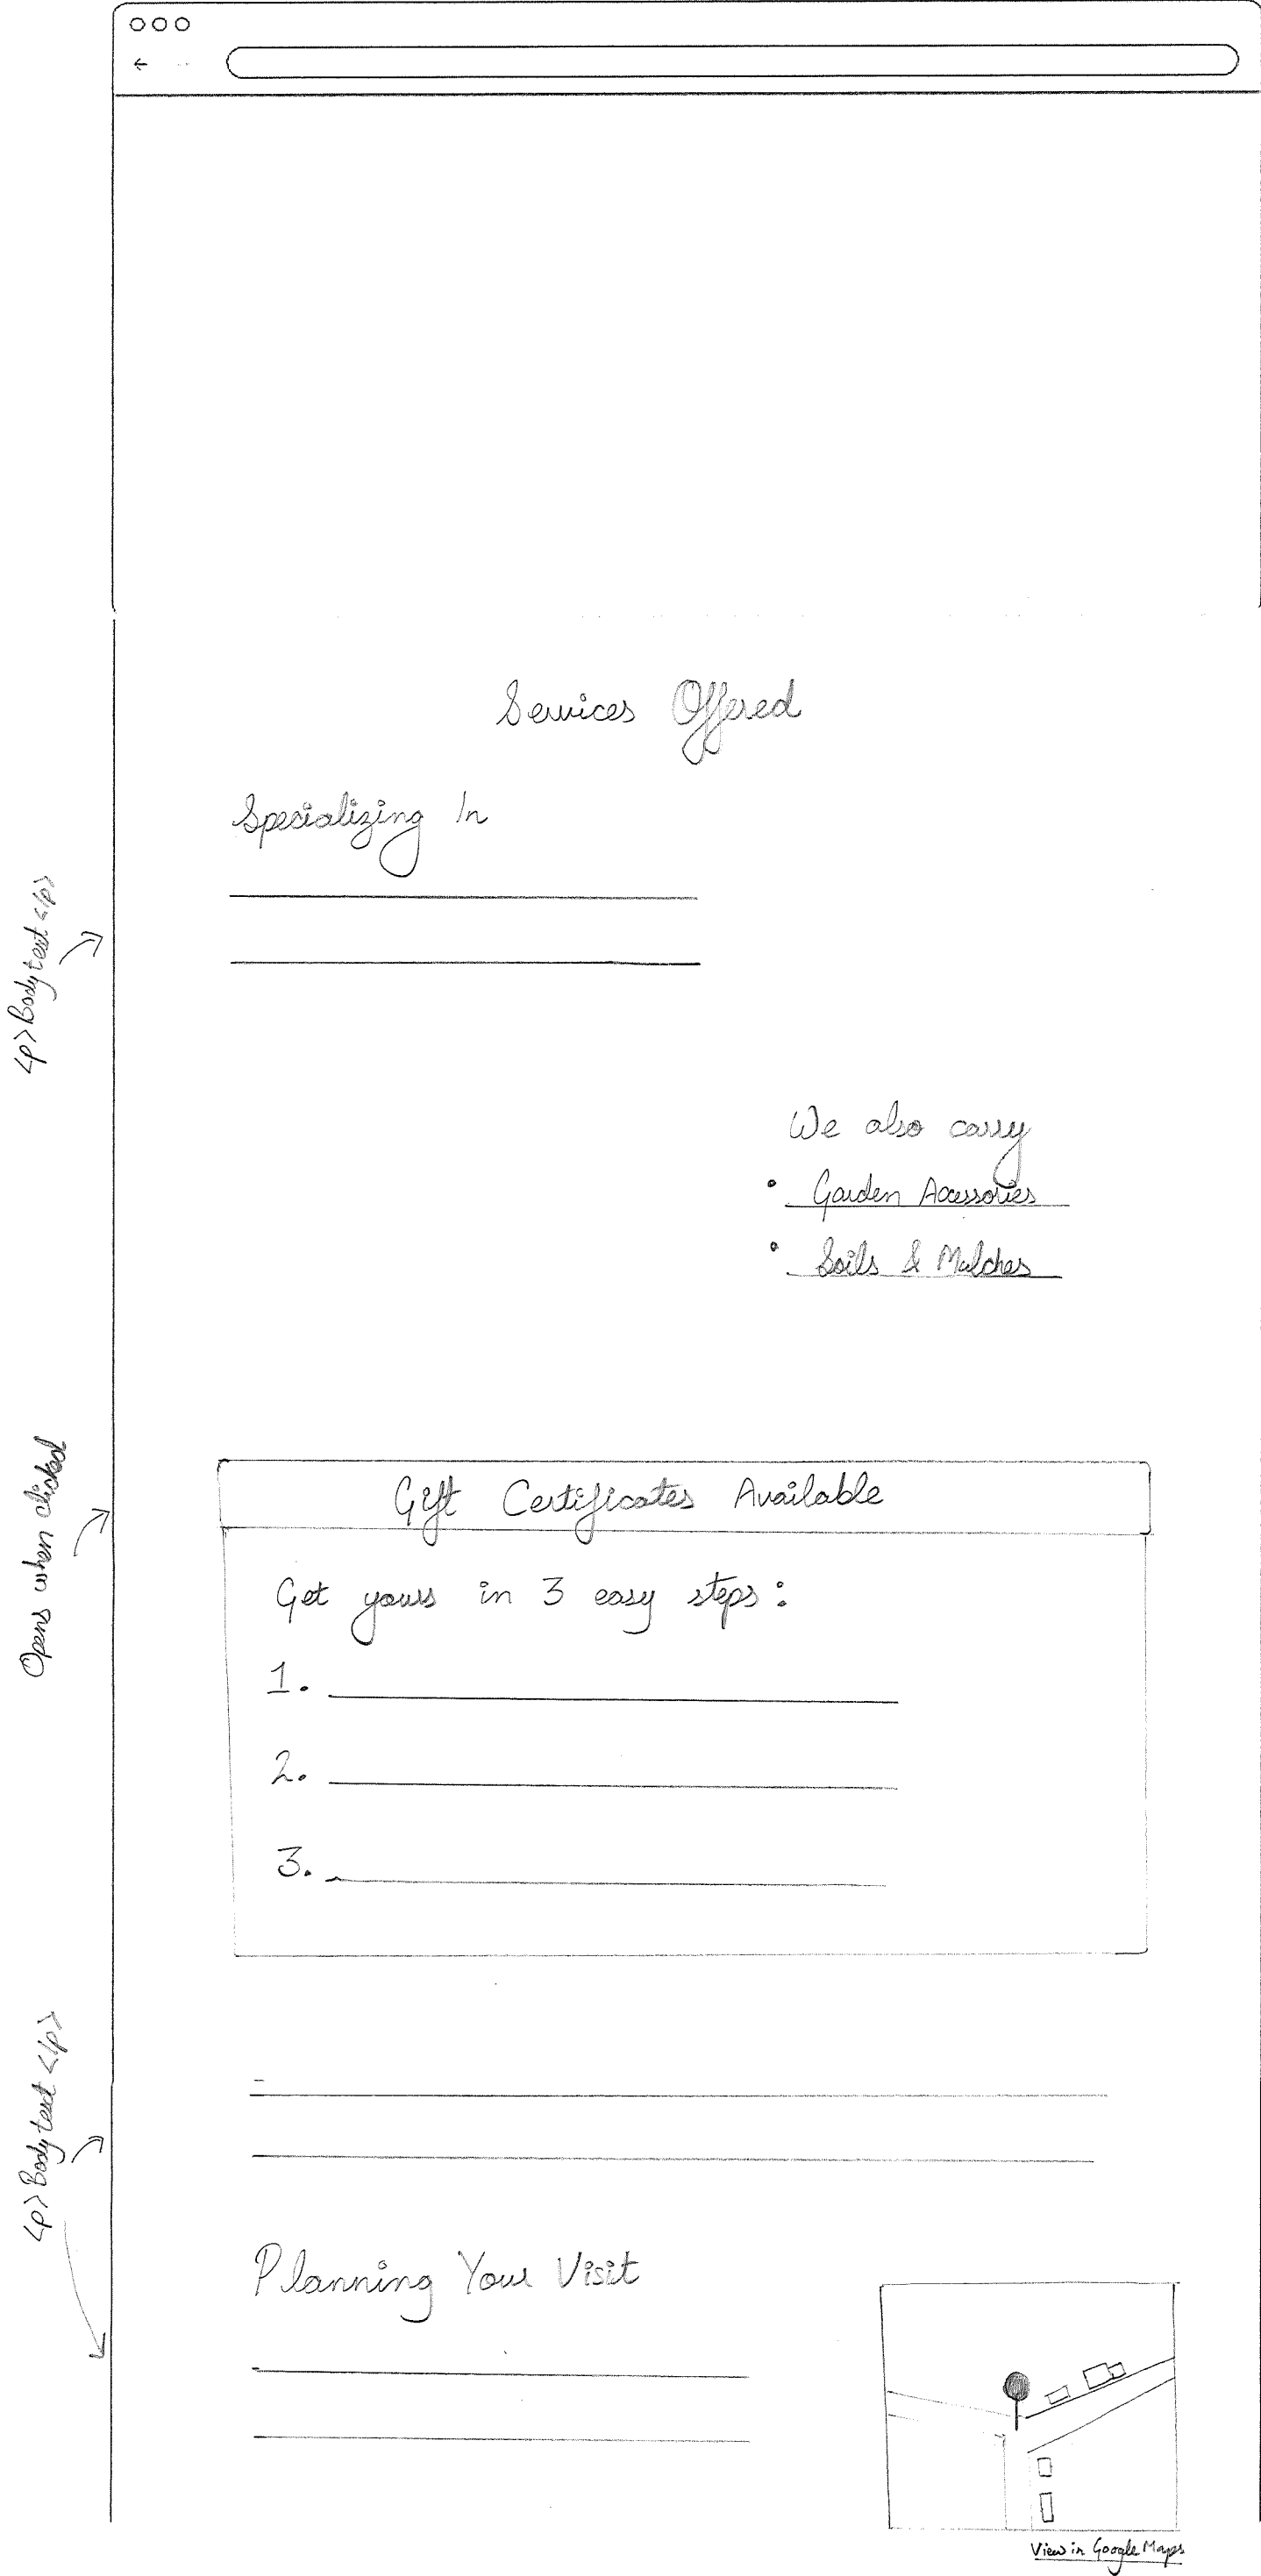 Services Offered
Specializing In
<p>Body text</p>
We also carry
• Garden Accessories
• Soils & Mulches
Opens when clicked
Gift Certificates Available
Get yours in 3 easy steps:
1.
2.
3.
<p>Body text</p>
Planning Your Visit
View in Google Maps